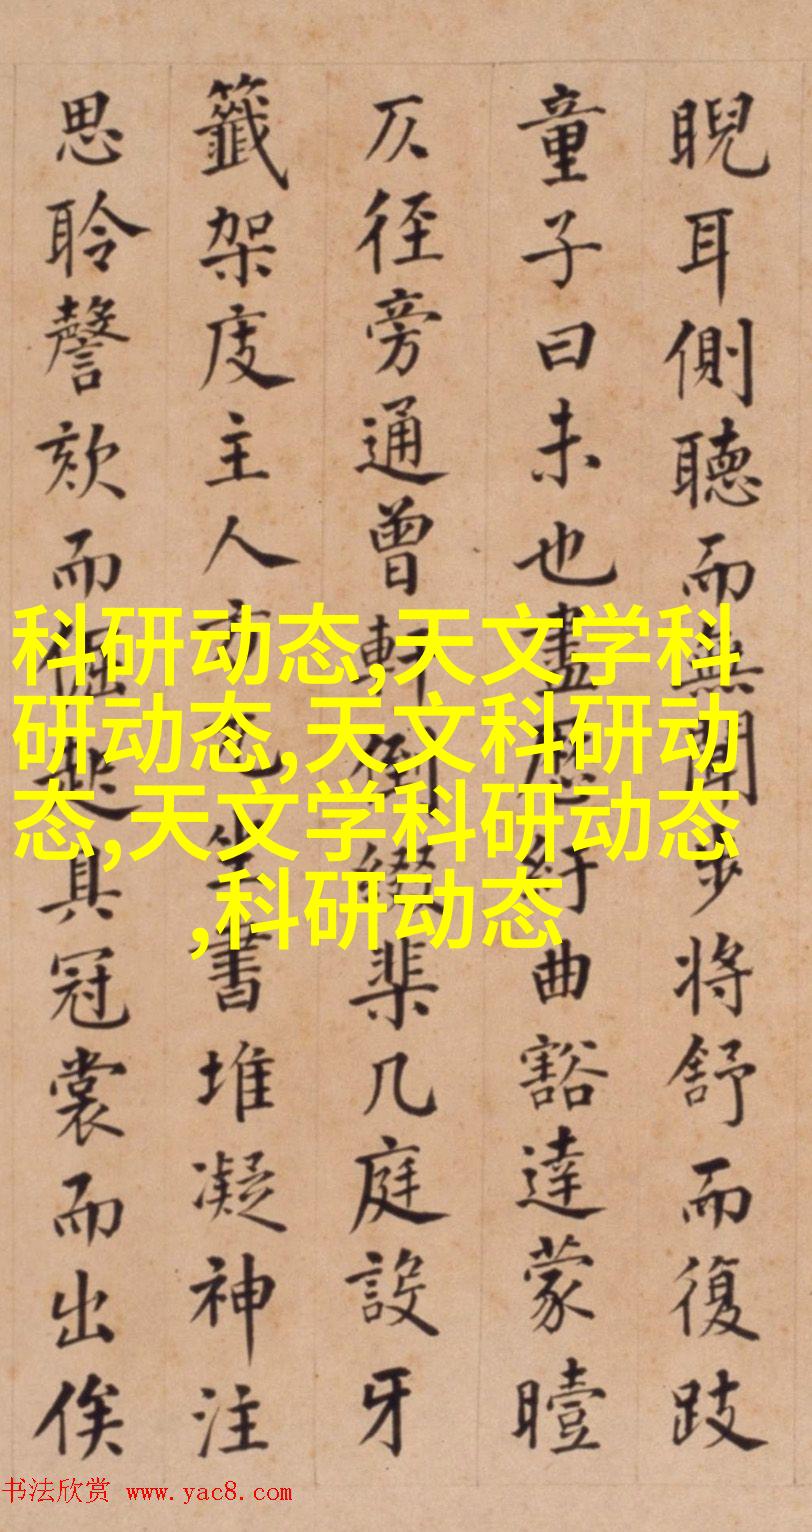 睨耳側聽而無聞步將舒而復跂
童子曰未也盡歷紆曲豁達蒙曀
仄徑旁通曾軒倒綴棐几庭設牙
籤架庋主人方危坐書堆凝神注
思聆謦欬而倔起具冠裳而出俟
科研动态,天文学科
研动态,天文科研动
态,天文学科研动态
,科研动态
书法欣赏 www.yac8.com